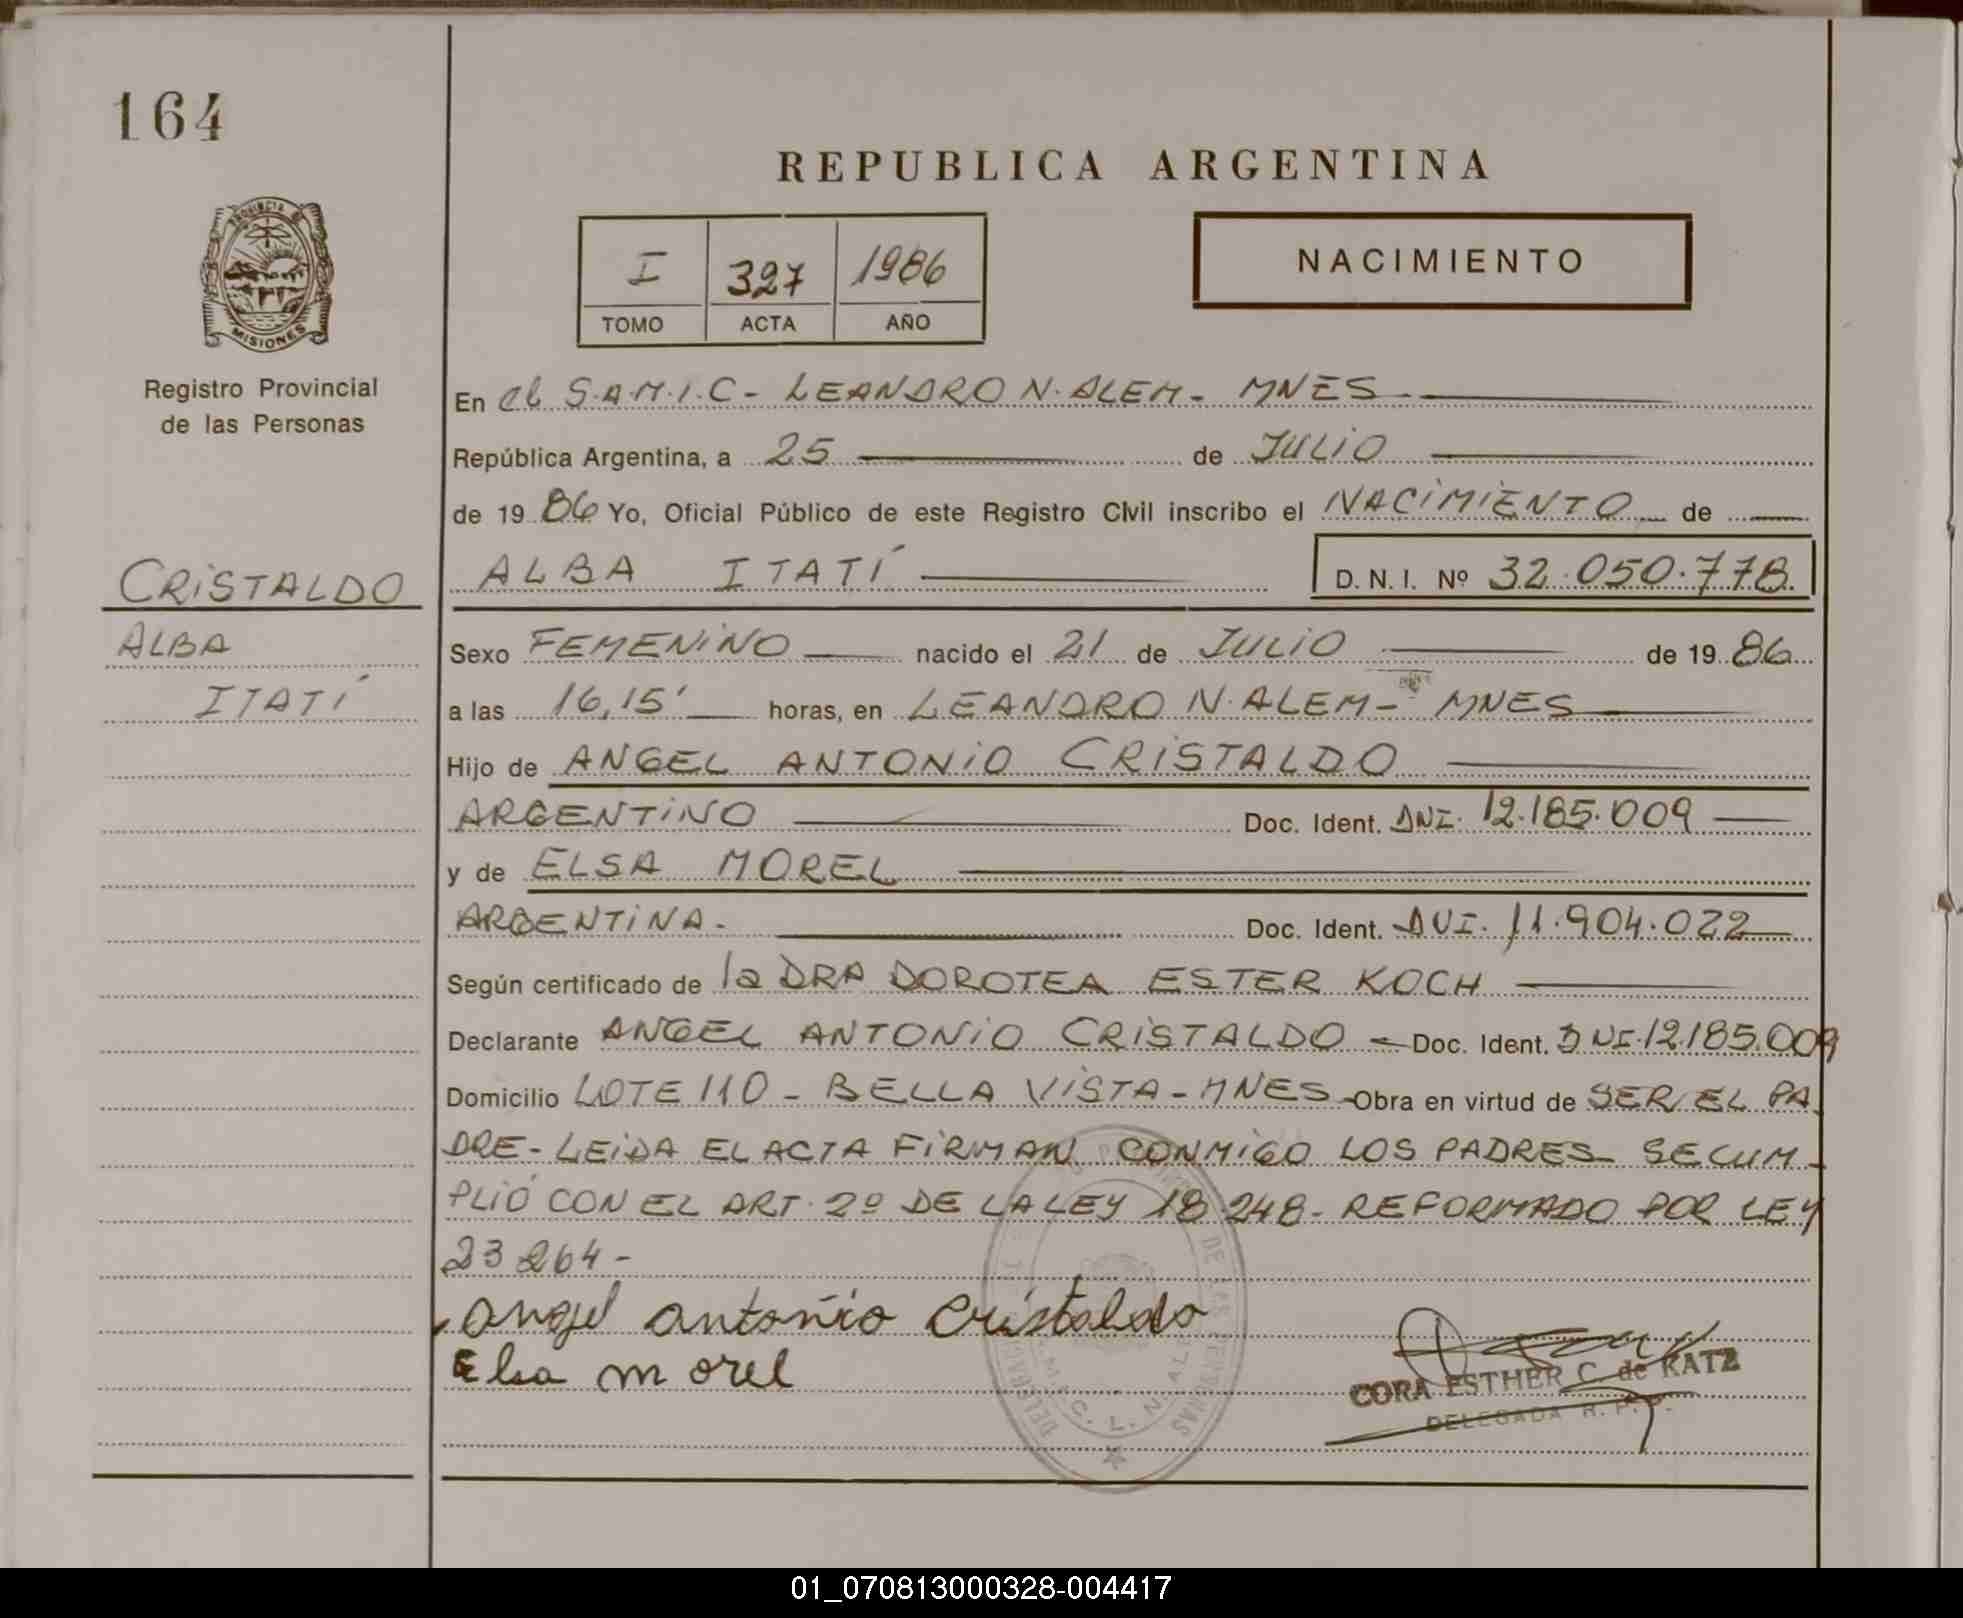 164
REPUBLICA ARGENTINA
I 327 1986
TOMO ACTA AÑO
NACIMIENTO
PROVINCIA DE
MISIONES
Registro Provincial
de las Personas
En el S.A.M.I.C - LEANDRO N. ALEM - MNES
República Argentina, a 25 de JULIO
de 19 86 Yo, Oficial Público de este Registro Civil inscribo el NACIMIENTO de
CRISTALDO
ALBA ITATÍ D.N.I. Nº 32.050.778
ALBA
ITATÍ
Sexo FEMENINO nacido el 21 de JULIO de 19 86
a las 16,15' horas, en LEANDRO N. ALEM - MNES
Hijo de ANGEL ANTONIO CRISTALDO
ARGENTINO Doc. Ident. DNI. 12.185.009
y de ELSA MOREL
ARGENTINA. Doc. Ident. DNI. 11.904.022
Según certificado de la DRA DOROTEA ESTER KOCH
Declarante ANGEL ANTONIO CRISTALDO - Doc. Ident. DNI.12.185.009
Domicilio LOTE 110 - BELLA VISTA - MNES - Obra en virtud de SER EL PA
DRE - LEIDA EL ACTA FIRMAN CONMIGO LOS PADRES SE CUM -
PLIÓ CON EL ART. 2º DE LA LEY 18.248 - REFORMADO POR LEY
23264 -
Angel Antonio Cristaldo
Elsa Morel
CORA ESTHER C. de KATZ
DELEGADA R. P. P.
01_070813000328-004417